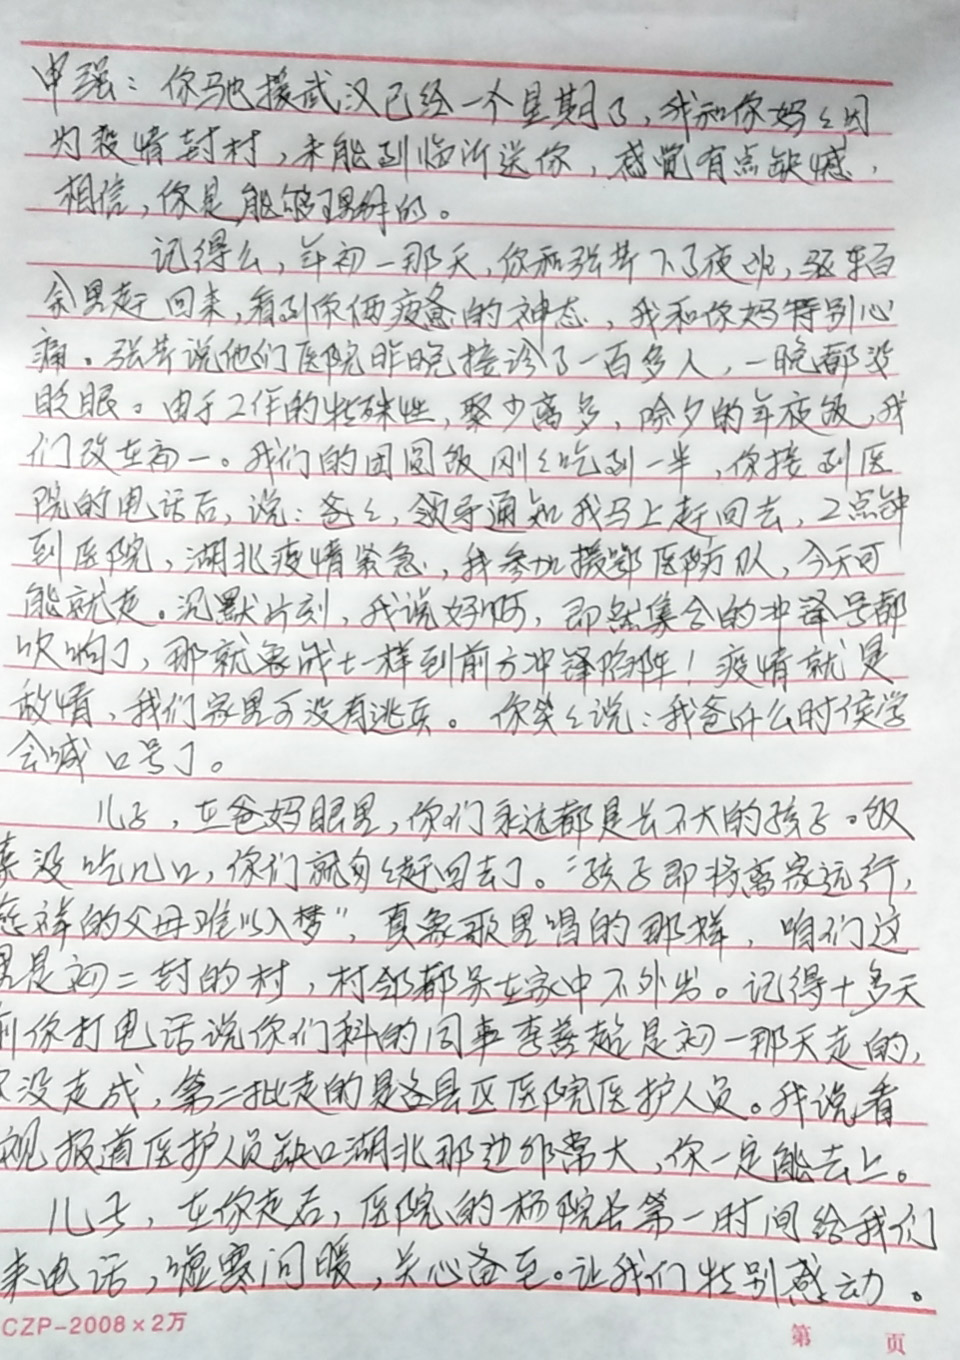 申强：你驰援武汉已经一个星期了，我和你妈々因
为疫情封村，未能到临沂送你，感觉有点缺憾，
相信，你是能够理解的。
记得么，年初一那天，你和张苹下了夜班，驱车百
余里赶回来，看到你俩疲惫的神态，我和你妈特别心
痛。张苹说他们医院昨晚接诊了一百多人，一晚都没
眨眼。由于工作的特殊性，聚少离多，除夕的年夜饭，我
们改在初一。我们的团圆饭刚々吃到一半，你接到医
院的电话后，说：爸々，领导通知我马上赶回去，2点钟
到医院，湖北疫情紧急，我参加援鄂医防队，今天可
能就走。沉默片刻，我说好啊，即然集合的冲锋号都
吹响了，那就象战士一样到前方冲锋陷阵！疫情就是
敌情，我们家里可没有逃兵。你笑々说：我爸什么时侯学
会喊口号了。
儿子，在爸妈眼里，你们永远都是长不大的孩子。饭
来没吃几口，你们就匆々赶回去了。“孩子即将离家远行，
怎样的父母难以入梦”，真象歌里唱的那样，咱们这
里是初二封的村，村邻都呆在家中不外出。记得十多天
前你打电话说你们科的同事李善超是初一那天走的，
没走成，第二批走的是各县区医院医护人员。我说看
视报道医护人员缺口湖北那边非常大，你一定能去上。
儿子，在你走后，医院的杨院长第一时间给我们
来电话，嘘寒问暖，关心备至。让我们特别感动。
CZP-2008×2万
第 页